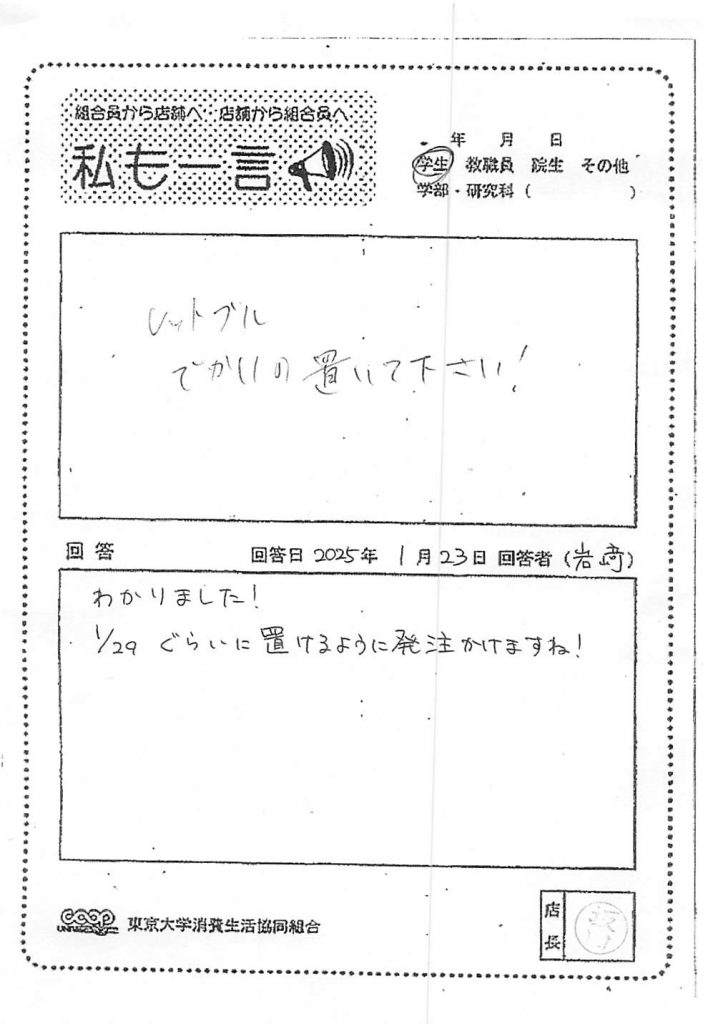 組合員から店舗へ 店舗から組合員へ
私も一言
年 月 日
学生 教職員 院生 その他
学部・研究科( )
レットブル
でかいの置いて下さい!
回答 回答日 2025年 1月23日 回答者(岩崎)
わかりました!
1/29 ぐらいに置けるように発注かけますね!
coop
東京大学消費生活協同組合
店長